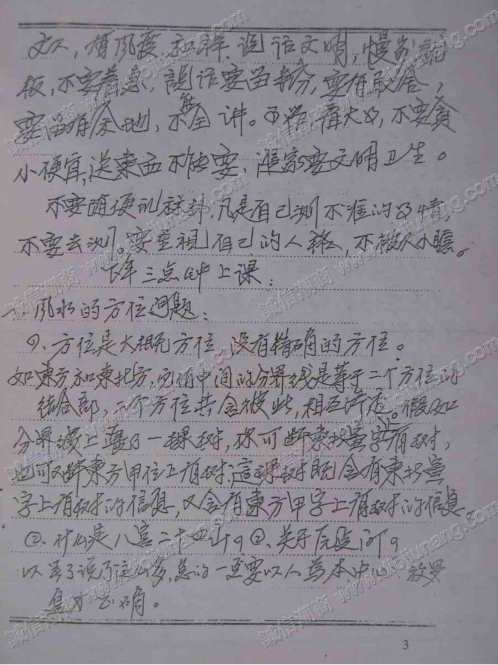 文人,有风度,和祥,说话文明,慢条
板,不要着急,说话要留余分,要有取舍,
要留有余地,不全讲。不要贪
小便宜,送东西不能要,居家要文明卫生。
不要随便乱,凡是自己测不准的事情,
不要去测。要重视自己的人格,不被人小瞧。
下午三点钟上课:
一.风水的方位问题:
①.方位是大概方位,没有精确的方位。
如东方和东北方,它们中间的分界线是等于二个方位的
结合部,二个方位共含彼此,相互。假如
分界线上有一棵树,你可断东北寅字有树,
也可以断东方甲位上有树,这棵树既含有东北寅
字上有树的信息,又含有东方甲字上有树的信息。
②.什么是八宫二十四山?②.关于反
以来了说了这么多,总的一定要以人为本中心,效果
正确。
3